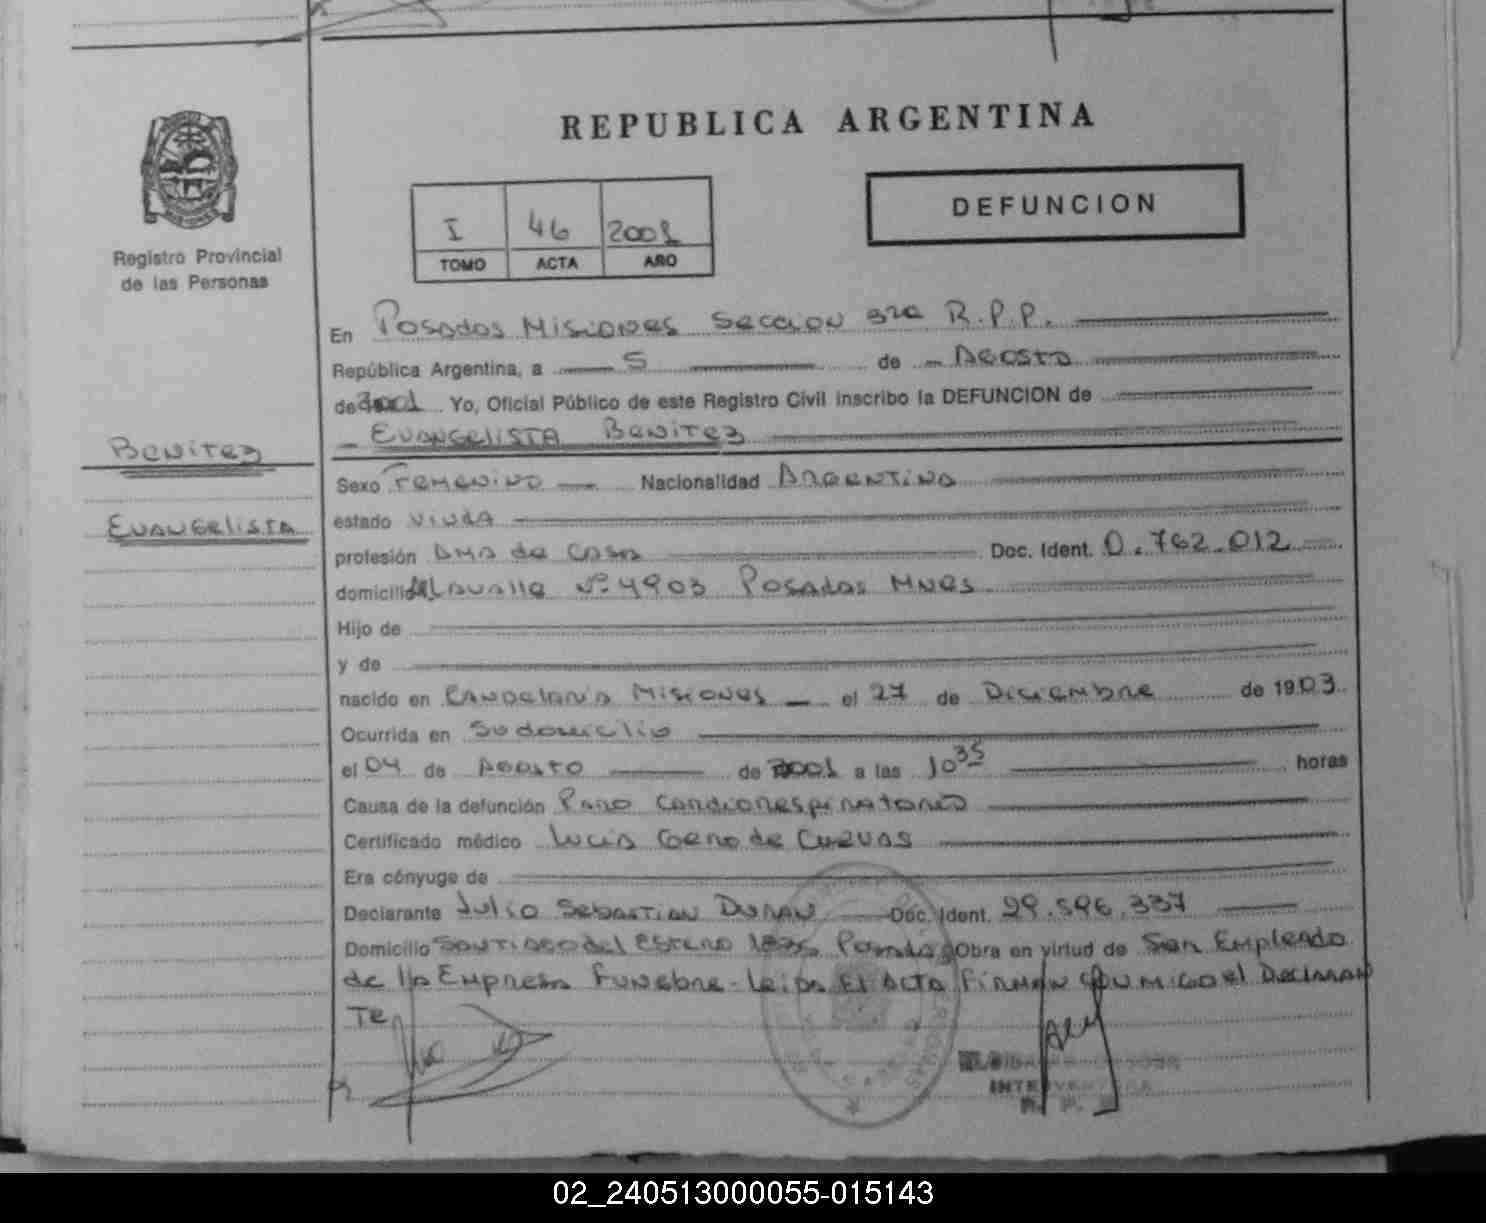 REPUBLICA ARGENTINA
DEFUNCION
I 46 2001
TOMO ACTA AÑO
Registro Provincial
de las Personas
Benitez
Evangelista
En Posadas Misiones Seccion 3ra R.P.P.
República Argentina, a 5 de Agosto
de 2001 Yo, Oficial Público de este Registro Civil inscribo la DEFUNCION de
Evangelista Benitez
Sexo Femenino Nacionalidad Argentina
estado viuda
profesión Ama de Casa Doc. Ident. 0.762.012
domicilio Lavalle Nº 4903 Posadas Mnes
Hijo de
y de
nacido en Candelaria Misiones el 27 de Diciembre de 1903
Ocurrida en Su domicilio
el 04 de Agosto de 2001 a las 10 35 horas
Causa de la defunción Paro cardiorespiratorio
Certificado médico Lucia Gero de Cuevas
Era cónyuge de
Declarante Julio Sebastian Duran Doc. Ident. 29.596.337
Domicilio Santiago del Estero 1835 Posadas Obra en virtud de Ser Empleado
de la Empresa Funebre - Leida El Acta Firman conmigo el Declaran
Te
02_240513000055-015143